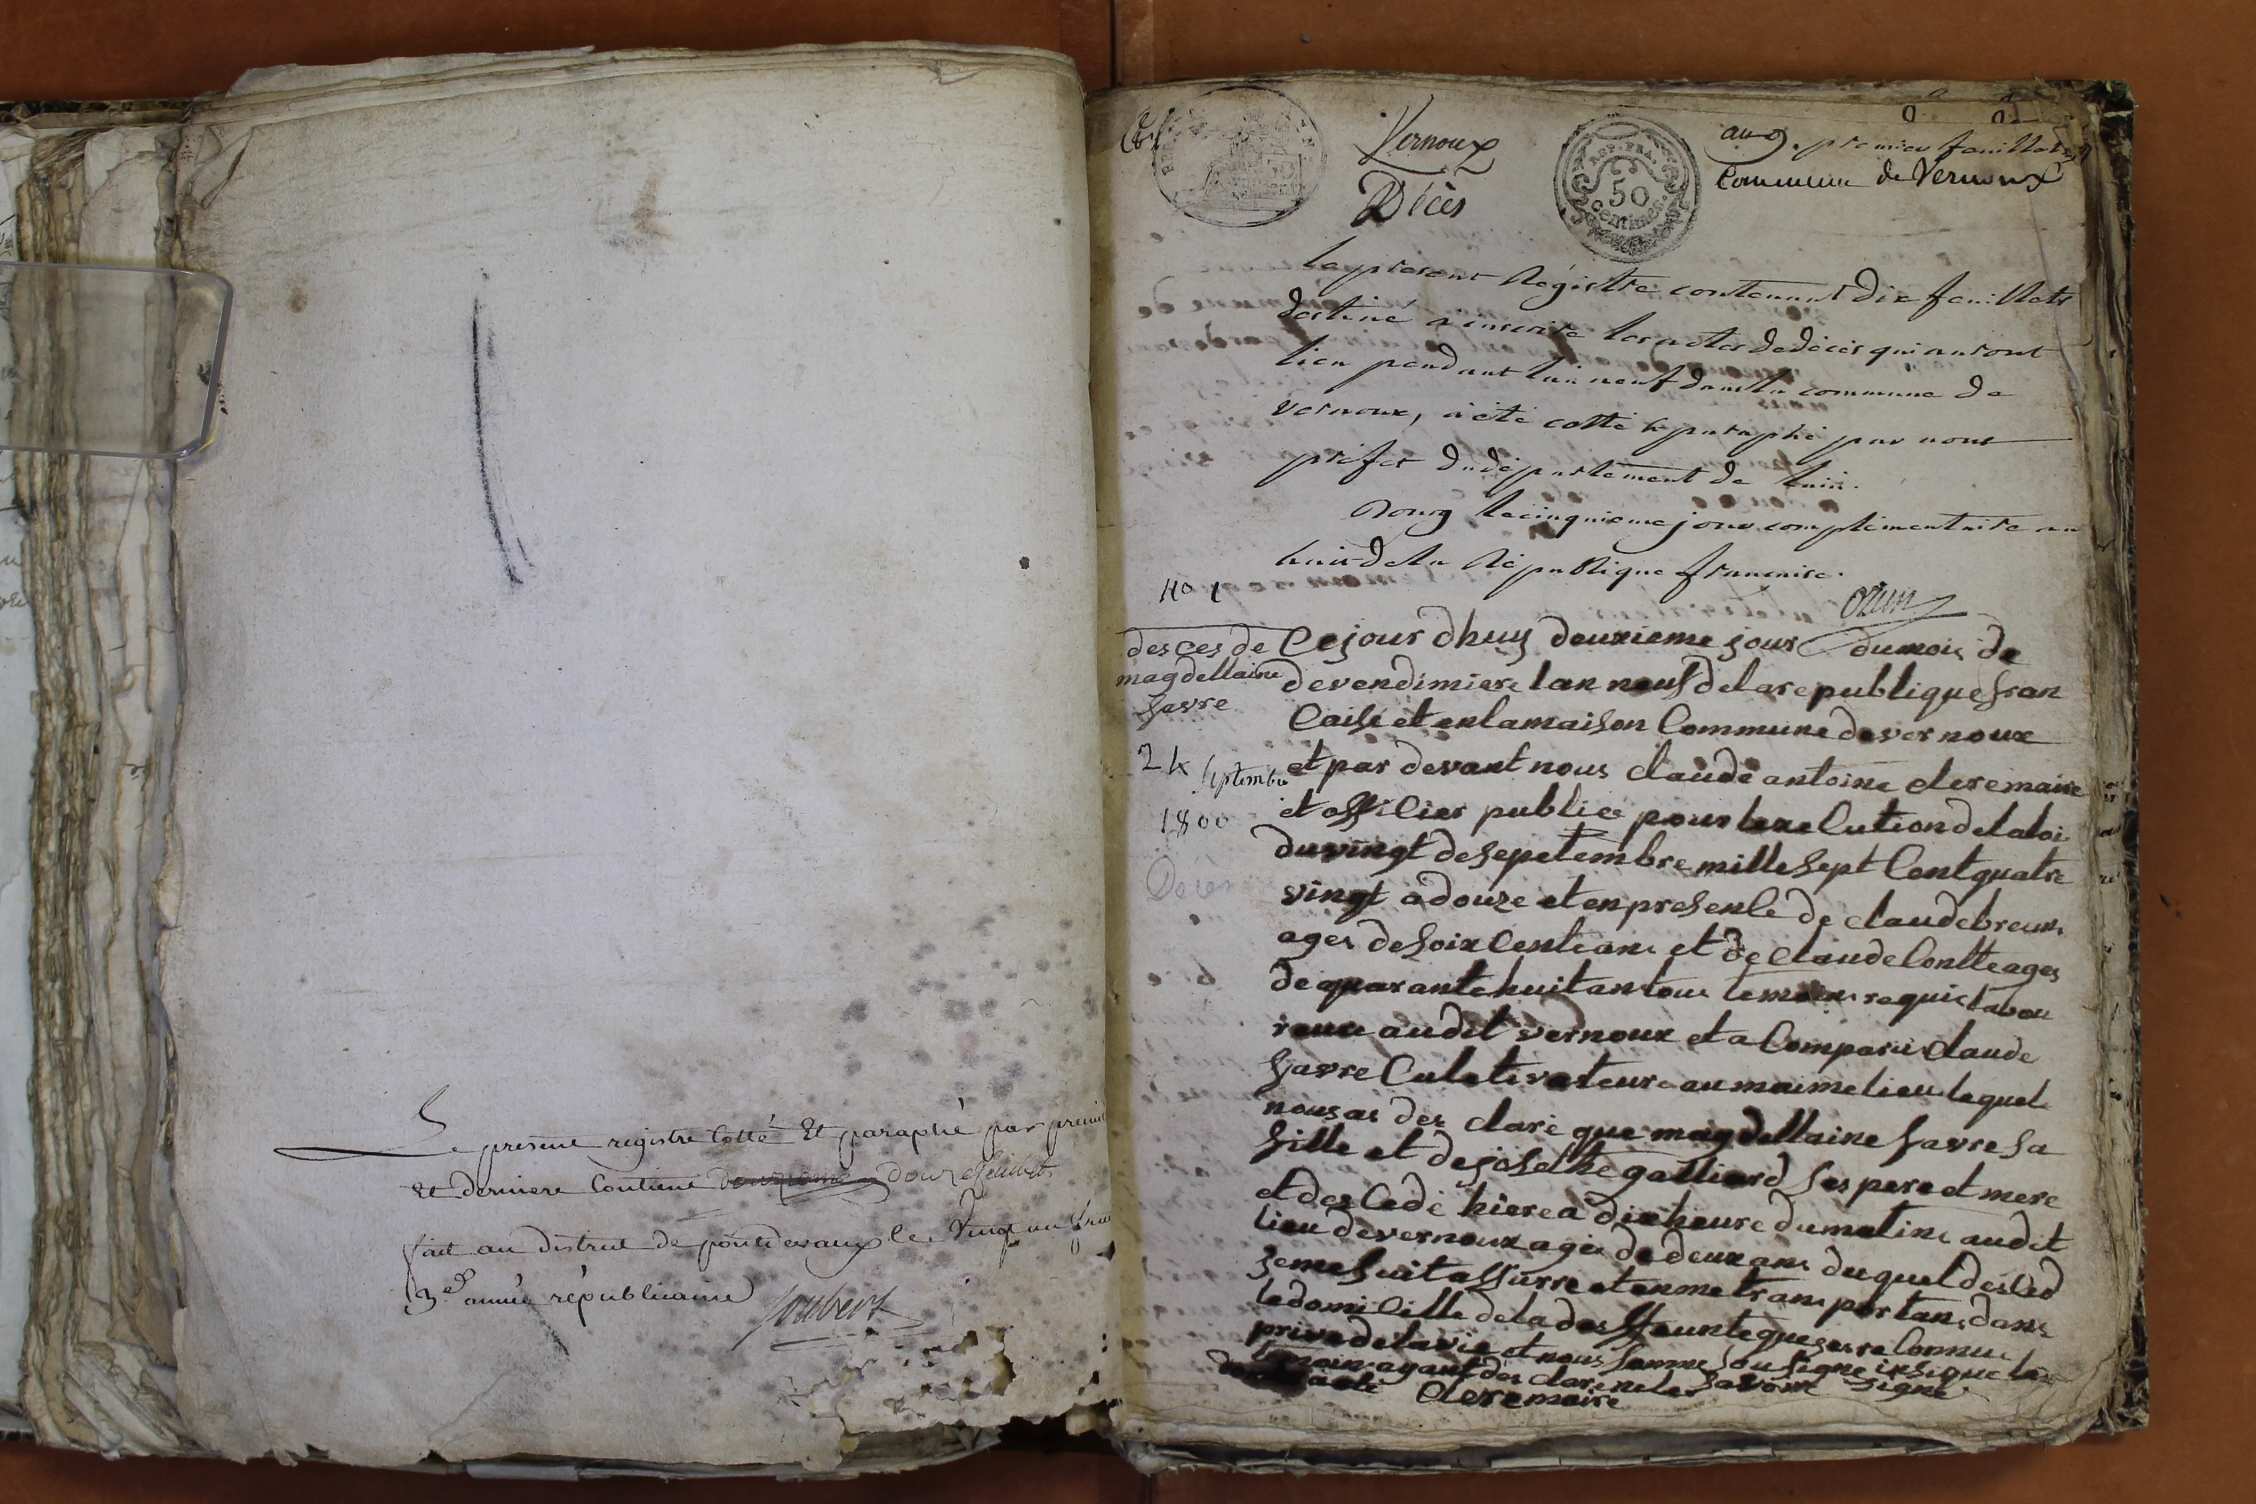 Le présent registre Cotté Et paraphé par premie
Et derniere Contient douze feuillets
fait au district de pontdevaux le Vingt un fri
3e année républicaine Joubert
Vernoux
Décès
REP. FRA.
50
centimes.
an 9. premier feuillet
Commune de Vernoux
Le present Régistre contenant dix feuillets
destiné a inscrire les actes de décès qui auront
lieu pendant l'an neuf dans la commune de
Vernoux, a été cotté & paraphé par nous
préfet du département de l'ain.
Bourg le cinquieme jour complémentaire an
huit de la République française.
Ozun
No 1
desces de
magdellaine
favre
24 septembre
1800
Ce jour dhuy deuxieme jour du mois de
devendimiere lan neuf de la republique fran
Caise et en la maison Commune de vernoux
et par devant nous claude antoine clere maire
et officier publice pour lexelution de la loi
du vingt de sepetembre mille sept Cent quatre
vingt a douze et en presenle de claude breun
ages de soixCente ans et de claude Contte ages
de quarante huit an tous temoins requis labou
reux audit vernoux et a Comparu Claude
favre Culetivateure au maime lieu lequel
nous as des claré que magdellaine favre sa
fille et de josethe galliard ses pere et mere
et des Cedé hiere a dix heure du matin audit
lieu de vernoux agé de deux ans duquel desCed
je me suit assurre et en me transportant dans
le domiCille de la deffeunte que je re Connu
prive de la vie et nous somme sousigne
temoin ayant des clare ne les savoir signé
acte clere maire